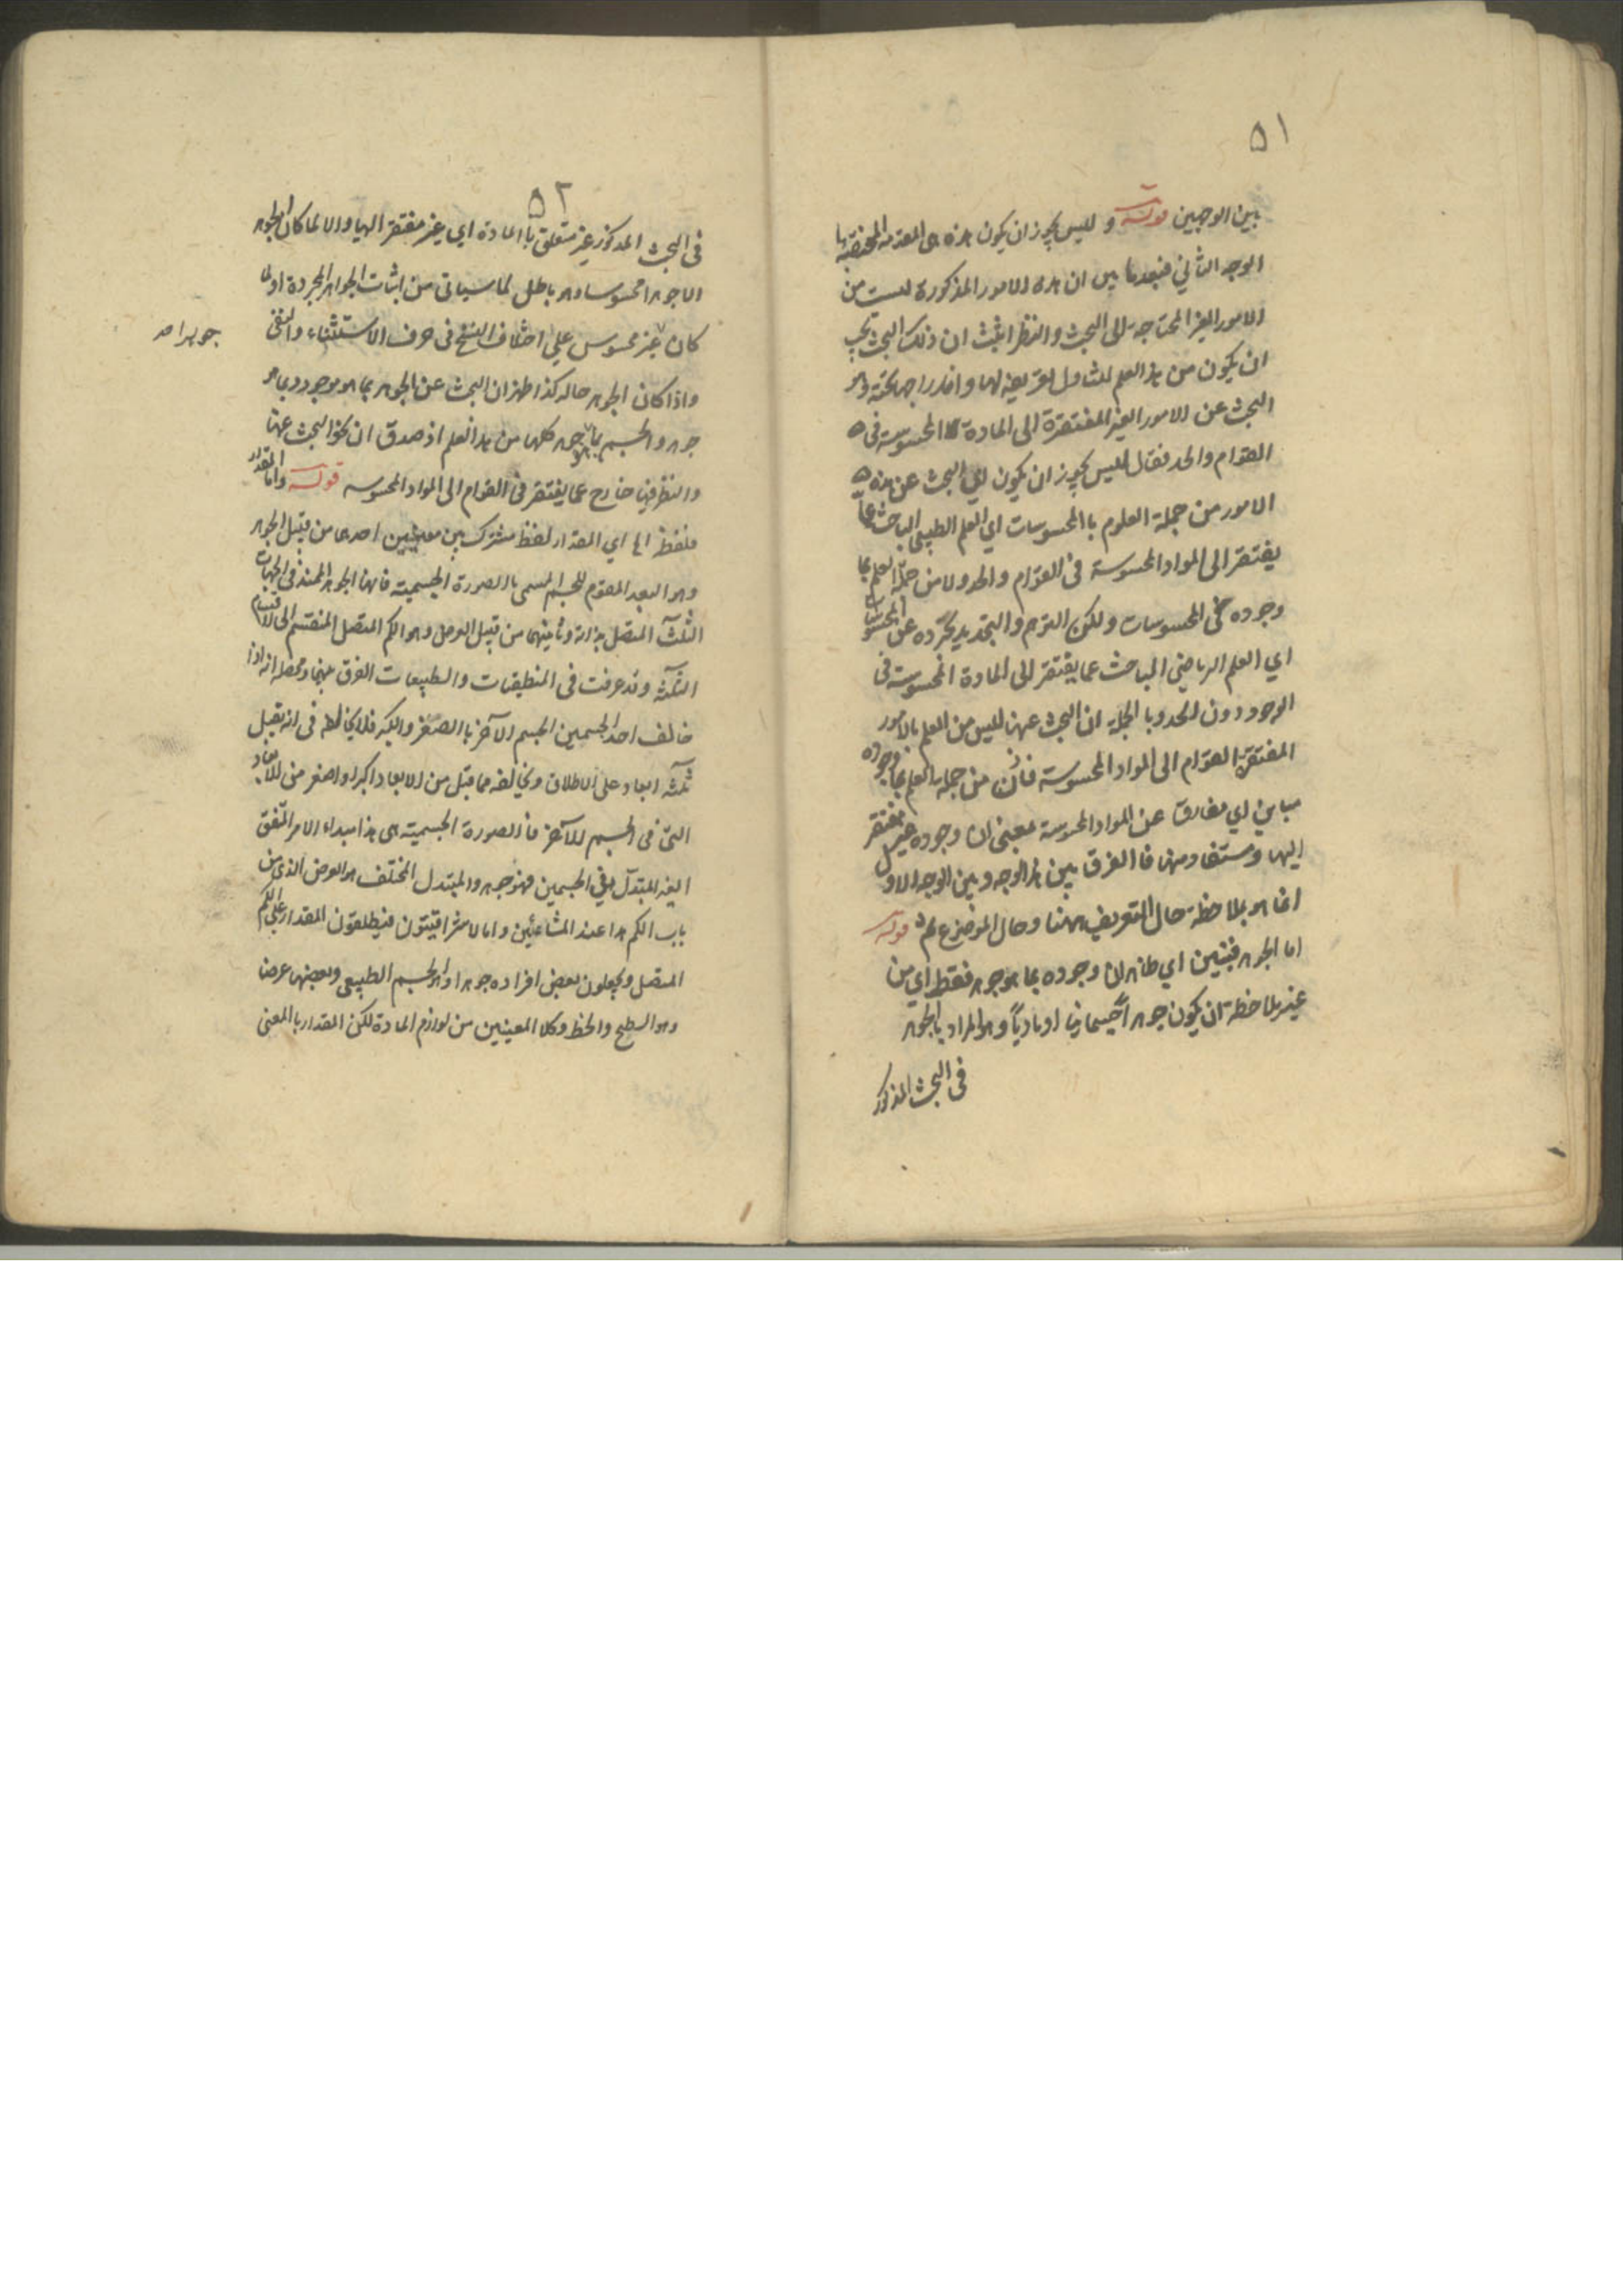 ٥١
بين الوجهين قوله و ليس يجوز ان يكون هذه هى المقدمة المختصة بها
الوجه الثاني فبعد ما بين ان هذه الامور المذكورة ليست من
الامور الغير المحتاجة الى البحث والنظر اثبت ان ذلك البحث يجب
ان يكون من هذا العلم لتناول تعريفه لها واندراجها تحته وهو
البحث عن الامور الغير المفتقرة الى المادة المحسوسة فى
القوام والحد فقال ليس يجوز ان يكون اي البحث عن هذه
الامور من جملة العلوم باالمحسوسات اي العلم الطبيعى الباحث عما
يفتقر الى المواد المحسوسة فى القوام والحد ولا من جملة العلم بما
وجوده فى المحسوسات ولكن التوهم والتحديد يجرده عن المحسوسات
اي العلم الرياضي الباحث عما يفتقر الى المادة المحسوسة فى
الوجود دون الحد وبا الجملة ان البحث عنها ليس من العلم بالامور
المفتقرة القوام الى المواد المحسوسة فاذن من جملة العلم بما وجوده
مباين اي مفارق عن المواد المحسوسة بمعنى ان وجوده غير مفتقر
اليها ومستفاد منها فا الفرق بين هذا الوجه وبين الوجه الاول
انما هو بملاحظة حال التعريف ههنا وحال الموضوع ثم قوله
اما الجوهر فبين اي ظاهر ان وجوده بما هو جوهر فقط اي من
غير ملاحظة ان يكون جوهرا جسمانيا او ماديا وهو المراد بالجوهر
فى البحث المذكور
٥٢
فى البحث المذكور غير متعلق باالمادة اي غير مفتقر اليها والا لما كان الجوهر
الا جوهرا محسوسا وهو باطل لما سياتى من اثبات الجواهر المجردة او لما
كان غير محسوس على اختلاف النسخ فى حرف الاستثناء والنفى
جوهرا صـ
واذا كان الجوهر حاله كذا ظهر ان البحث عن الجوهر بما هو موجود وبما هو
جوهر والجسم بما هو جوهر كلها من هذا العلم اذ صدق ان نحو البحث عنها
والنظر فيها خارج عما يفتقر فى القوام الى المواد المحسوسه قوله واما المقدار
فلفظ اما اي المقدار لفظ مشترك بين معنيين احدهما من قبيل الجوهر
وهو البعد المقوم للجسم المسمى باالصورة الجسمية فانها الجوهر الممتد فى الجهات
الثلث المتصل بذاته وثانيهما من قبيل العرض وهو الكم المتصل المنقسم الى الاقسام
الثلثه وقد عرفت فى المنطيقيات والطبيعيات الفرق بينهما ومحصله انه اذا
خالف احد الجسمين الجسم الآخر باالصغر والكبر فلا يخالفه فى انه يقبل
ثلثه ابعاد على الاطلاق ويخالفه مما قبل من الابعاد اكبر او اصغر من الابعاد
التى فى الجسم الآخر فاالصورة الجسمية هى هذا مبداء الامر المتفق
الغير المتبدل فى الجسمين فهو جوهر والمتبدل المختلف هو العرض الذى من
باب الكم هذا عند المشائين واما الاشراقييون فيطلقون المقدار على الكم
المتصل ويجعلون بعض افراده جوهرا وهو الجسم الطبيعى وبعضها عرضا
وهو السطح والخط وكلا المعنيين من لوازم المادة لكن المقدار باالمعنى